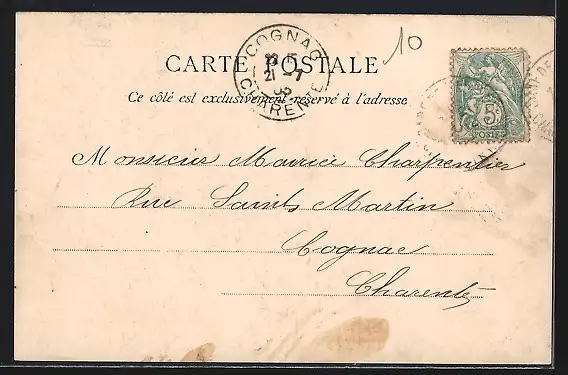 10
CARTE POSTALE
COGNAC
21 -7
CHARENTE
Ce côté est exclusivement réservé à l'adresse
5
POSTES
Monsieur Maurice Charpentier
Rue Saints Martin
Cognac
Charente